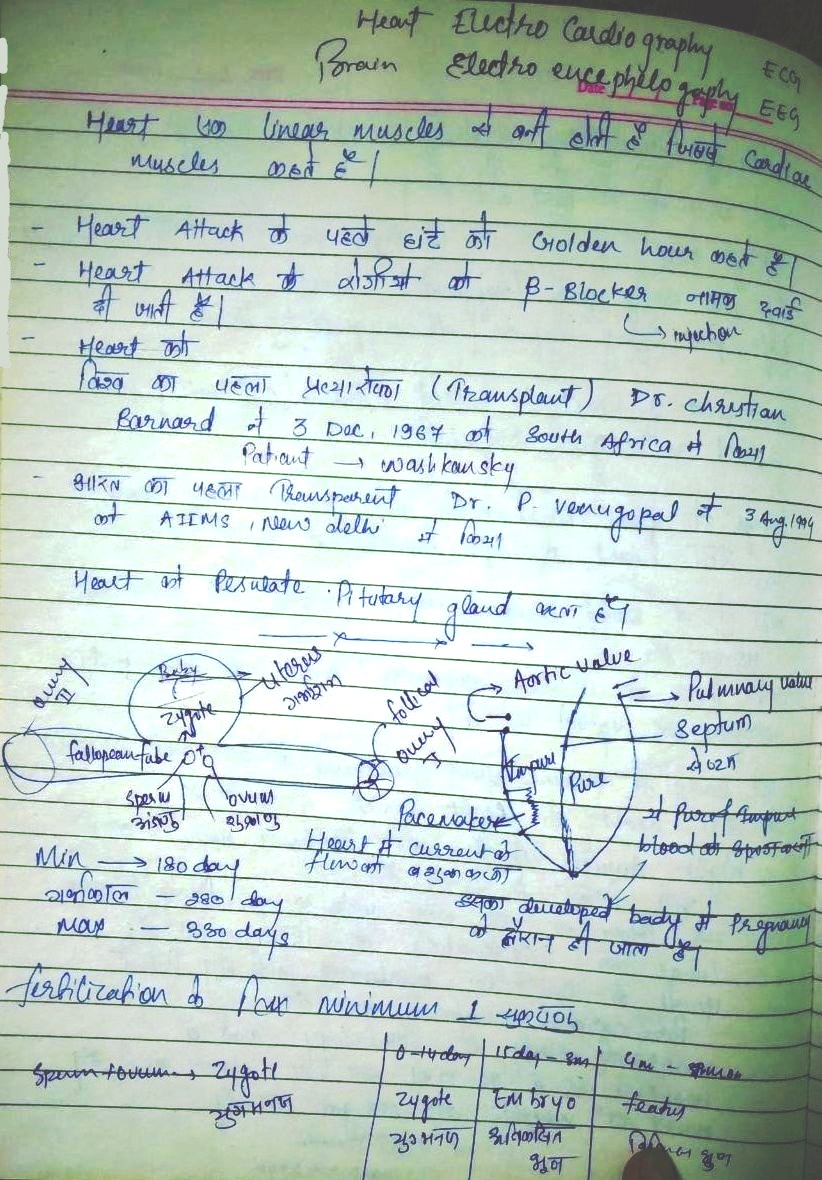 Heart Electro Cardiography ECG
Brain Electro eucephelography EEG
Date
Heart एक linear muscles से बनी होती है जिसे Cardiac
muscles कहते हैं|
- Heart Attack के पहले घंटे को Golden hour कहते हैं|
- Heart Attack के रोगीओ को β-Blocker नामक दवाई
दी जाती है|
→ injection
- Heart को
विश्व का पहला प्रत्यारोपण (Transplant) Dr. Christian
Barnard ने 3 Dec, 1967 को South Africa में किया
Patiant → Washkansky
- भारत का पहला Transparent Dr. P. Venugopal ने 3 Aug. 1994
को AIIMS, New delhi में किया
Heart को Pitutary gland करता है|
Ovary II
Baby
Zygote
Uterus
गर्भाशय
follical
Ovary I
fallopean tube
sperm
ovum
Aortic valve
Pulmnary valve
Septum
Impure
Pure
Pacemaker
से Pure व Impure
Heart में current के
blood को
flow को
Min → 180 day
गर्भकाल - 280 day
Max - 330 days
developed body में Pregnancy
के दौरान हो जाता है|
fertilization के लिए minimum 1
Sperm + ovum → Zygote
युग्मनज
0-14 day 15 day - 3m 4m -
Zygote Embryo featus
युग्मनज भ्रूण
भ्रूण